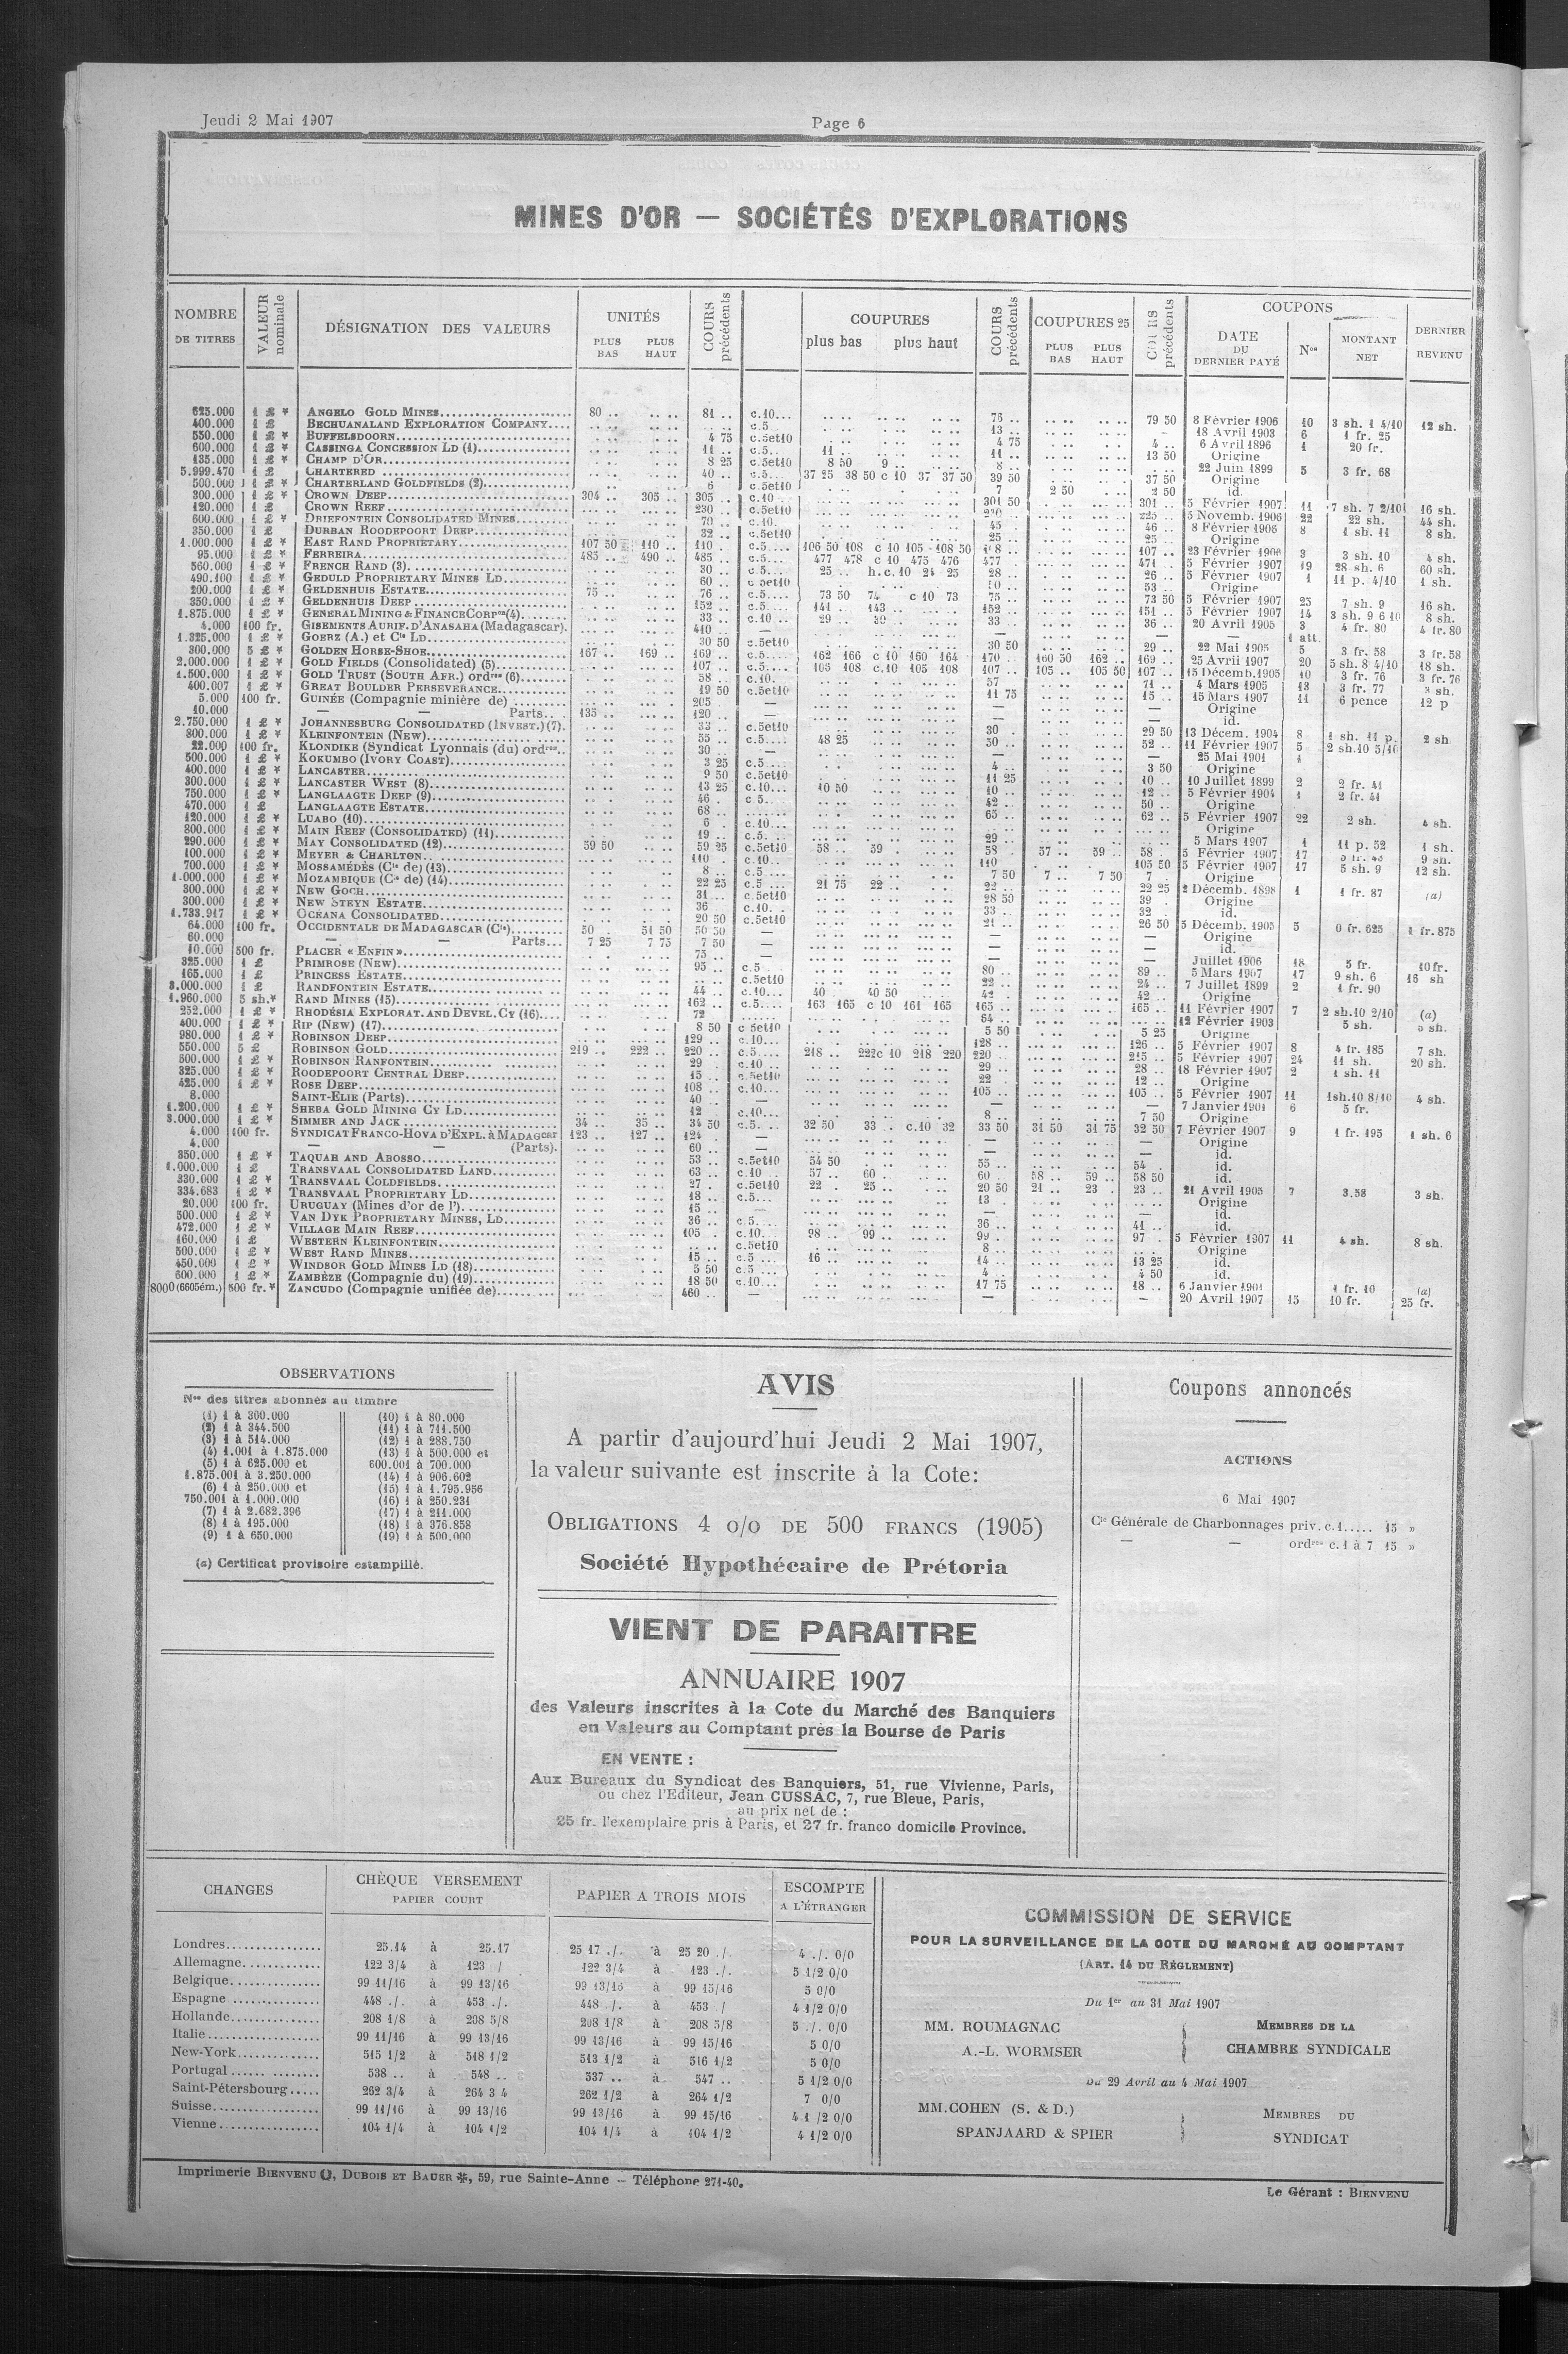 Jeudi 2 Mai 1907
Page 6
MINES D'OR — SOCIÉTÉS D'EXPLORATIONS
NOMBRE DE TITRES
VALEUR nominale
DÉSIGNATION DES VALEURS
UNITÉS
PLUS BAS PLUS HAUT
COURS précédents
COUPURES
plus bas plus haut
COURS précédents
COUPURES 25
PLUS BAS PLUS HAUT
précédents
COUPONS
DATE DU DERNIER PAYÉ
Nos
MONTANT NET
DERNIER REVENU
625.000 1 £ * ANGELO GOLD MINES 80 .. 81 .. c.10... 79 50 8 Février 1906 10 3 sh. 1 4/10 12 sh.
400.000 1 £ BECHUANALAND EXPLORATION COMPANY c.5 13 .. 18 Avril 1903 6 1 fr. 25
550.000 1 £ * BUFFELSDOORN 4 75 c.5et10 4 75 4 .. 6 Avril 1896 1 20 fr.
600.000 1 £ * CASSINGA CONCESSION LD (1) 11 .. c.5.. 11 .. 11 .. 13 50 Origine
135.000 1 £ * CHAMP D'OR 8 25 c.5et10 8 50 9 .. 8 .. 22 Juin 1899 5 3 fr. 68
5.999.470 1 £ CHARTERED 40 .. c.5... 37 25 38 50 c 10 37 37 50 39 50 37 50 Origine
500.000 1 £ * CHARTERLAND GOLDFIELDS (2) 6 c.5et10 7 2 50 2 50 id.
300.000 1 £ * CROWN DEEP 304 .. 305 .. 305 .. c.10 .. 301 50 301 .. 5 Février 1907 11 7 sh. 7 2/10 16 sh.
120.000 1 £ CROWN REEF 230 c.5et10 225 .. 5 Novemb. 1906 22 22 sh. 44 sh.
600.000 1 £ * DRIEFONTEIN CONSOLIDATED MINES 70 .. c.10. 45 46 .. 8 Février 1906 8 1 sh. 11 8 sh.
350.000 1 £ DURBAN ROODEPOORT DEEP 32 .. c.5et10 25 .. 25 .. Origine
1.000.000 1 £ * EAST RAND PROPRIETARY 107 50 110 .. 110 .. c.5.... 106 50 108 c 10 105 108 50 107 .. 23 Février 1906 3 3 sh. 10 4 sh.
95.000 1 £ * FERREIRA 485 .. 490 .. 485 .. c.5... 477 478 c 10 475 476 477 471 .. 5 Février 1907 19 28 sh. 6 60 sh.
560.000 1 £ * FRENCH RAND (3) 30 .. c.5... 25 .. h.c.10 24 25 28 .. 26 .. 5 Février 1907 1 11 p. 4/10 1 sh.
490.100 1 £ * GEDULD PROPRIETARY MINES LD 60 .. c 5et10 53 .. Origine
200.000 1 £ * GELDENHUIS ESTATE 75 .. 76 .. c.5.... 73 50 74 c 10 73 75 .. 73 50 5 Février 1907 25 7 sh. 9 16 sh.
350.000 1 £ * GELDENHUIS DEEP 152 .. c.5.... 141 .. 143 .. 152 .. 151 .. 5 Février 1907 14 3 sh. 9 6 10 8 sh.
1.875.000 1 £ * GENERAL MINING & FINANCE Corpon (4) 33 .. c.10 .. 29 .. 33 .. 36 .. 20 Avril 1905 3 4 fr. 80 4 fr. 80
4.000 100 fr. GISEMENTS AURIF. D'ANASAHA (Madagascar). 410 .. — — — — 1 att.
1.325.000 1 £ * GOERZ (A.) et Cie LD 30 50 c.5et10 30 50 29 .. 22 Mai 1905 5 3 fr. 58 3 fr. 58
300.000 5 £ * GOLDEN HORSE-SHOE 167 .. 169 .. 169 .. c.5.... 162 166 c 10 160 164 170 .. 160 50 162 .. 169 .. 25 Avril 1907 20 5 sh. 8 4/10 18 sh.
2.000.000 1 £ * GOLD FIELDS (Consolidated) (5) 107 .. c.5.... 105 108 c.10 105 108 107 .. 105 .. 105 50 107 .. 15 Décemb. 1905 10 3 fr. 76 3 fr. 76
1.500.000 1 £ * GOLD TRUST (SOUTH AFR.) ordres (6) 58 .. c.10. 57 71 .. 4 Mars 1905 13 3 fr. 77 3 sh.
400.007 1 £ * GREAT BOULDER PERSEVERANCE 19 50 c.5et10 11 75 15 .. 15 Mars 1907 11 6 pence 12 p
5.000 100 fr. GUINÉE (Compagnie minière de) 205 — — — Origine
10.000 — — Parts.. 135 .. 120 — — — id.
2.750.000 1 £ * JOHANNESBURG CONSOLIDATED (INVEST.) (7). 33 .. c.5et10 30 . 29 50 13 Décem. 1904 8 1 sh. 11 p. 2 sh
800.000 1 £ * KLEINFONTEIN (NEW) 55 .. c.5.... 48 25 50 .. 52 .. 11 Février 1907 5 2 sh.10 5/10
22.000 100 fr. KLONDIKE (Syndicat Lyonnais (du) ordres.. 30 — — — 25 Mai 1901 1
500.000 1 £ * KOKUMBO (IVORY COAST) 3 25 c.5... 4 .. 3 50 Origine
400.000 1 £ * LANCASTER 9 50 c.5et10 11 25 10 .. 10 Juillet 1899 2 2 fr. 41
300.000 1 £ * LANCASTER WEST (8) 13 25 c.10... 10 50 10 .. 12 .. 5 Février 1904 1 2 fr. 41
750.000 1 £ * LANGLAAGTE DEEP (9) 46 . c 5.. 42 .. 50 .. Origine
470.000 1 £ LANGLAAGTE ESTATE 68 .. 65 .. 62 .. 5 Février 1907 22 2 sh. 4 sh.
120.000 1 £ * LUABO (10) 6 . c.10... Origine
800.000 1 £ * MAIN REEF (CONSOLIDATED) (11) 19 .. c.5... 29 .. 5 Mars 1907 1 11 p. 52 1 sh.
290.000 1 £ * MAY CONSOLIDATED (12) 59 50 59 25 c.5et10 58 .. 59 58 . 57 .. 59 .. 58 .. 5 Février 1907 17 9 sh.
100.000 1 £ * MEYER & CHARLTON 110 . c.10.. 110 105 50 5 Février 1907 17 5 sh. 9 12 sh.
700.000 1 £ * MOSSAMÉDÈS (Cie de) (13) 8 .. c.5.... 7 50 7 .. 7 50 7 . Origine
1.000.000 1 £ * MOZAMBIQUE (Cie de) (14) 22 25 c.5 ... 21 75 22 .. 22 .. 22 25 2 Décemb. 1898 1 1 fr. 87 (a)
300.000 1 £ * NEW GOCH 31 .. c.5et10 28 50 39 . Origine
300.000 1 £ * NEW STEYN ESTATE 36 c.10.. 33 .. 32 . id.
1.733.917 1 £ * OCEANA CONSOLIDATED 20 50 c.5et10 21 .. 26 50 5 Décemb. 1905 5 0 fr. 625 1 fr. 875
64.000 100 fr. OCCIDENTALE DE MADAGASCAR (Cie) 50 . 51 50 50 50 — — — Origine
60.000 — — Parts... 7 25 7 75 7 50 — — — id.
10.000 500 fr. PLACER « ENFIN » 75 .. — — — Juillet 1906 18 5 fr. 10 fr.
325.000 1 £ PRIMROSE (NEW) 95 .. c.5 80 .. 89 .. 5 Mars 1907 17 9 sh. 6 16 sh
165.000 1 £ PRINCESS ESTATE c.5et10 22 .. 24 .. 7 Juillet 1899 2 1 fr. 90
3.000.000 1 £ RANDFONTEIN ESTATE 44 .. c.10... 40 40 50 42 42 .. Origine
1.960.000 5 sh.* RAND MINES (15) 162 .. c.5.... 163 165 c 10 161 165 165 .. 165 .. 11 Février 1907 7 2 sh.10 2/10 (a)
252.000 1 £ * RHODÉSIA EXPLORAT. AND DEVEL. CY (16) 72 64 .. 12 Février 1903 5 sh. 5 sh.
400.000 1 £ * RIP (NEW) (17) 8 50 c 5et10 5 50 5 25 Origine
980.000 1 £ * ROBINSON DEEP 129 .. c.10... 128 .. 126 .. 5 Février 1907 8 4 fr. 185 7 sh.
550.000 5 £ ROBINSON GOLD 219 .. 222 .. 220 .. c.5.... 218 .. 222c 10 218 220 220 .. 215 .. 5 Février 1907 24 11 sh. 20 sh.
600.000 1 £ * ROBINSON RANFONTEIN 29 c.10 .. 29 .. 28 .. 18 Février 1907 2 1 sh. 11
325.000 1 £ * ROODEPOORT CENTRAL DEEP 15 .. c.5et10 22 .. 12 .. Origine
425.000 1 £ * ROSE DEEP 108 .. c.10... 105 .. 105 .. 5 Février 1907 11 1sh.10 8/10 4 sh.
8.000 SAINT-ELIE (Parts) 40 .. — — — 7 Janvier 1901 6 5 fr.
1.200.000 1 £ * SHEBA GOLD MINING CY LD 12 c.10... 8 .. 7 50 Origine
3.000.000 1 £ * SIMMER AND JACK 34 .. 35 .. 34 50 c.5. ... 32 50 33 .. c.10 32 33 50 31 50 31 75 32 50 7 Février 1907 9 1 fr. 195 1 sh. 6
4.000 100 fr. SYNDICAT FRANCO-HOVA D'EXPL. à MADAGcar 123 .. 127 .. 124 . — — — Origine
4.000 — — (Parts). 60 .. — — — id.
350.000 1 £ * TAQUAH AND ABOSSO 53 .. c.5et10 54 50 55 .. 54 . id.
1.000.000 1 £ TRANSVAAL CONSOLIDATED LAND 63 .. c.10 .. 57 .. 60 .. 60 . 58 .. 59 .. 58 50 id.
330.000 1 £ * TRANSVAAL GOLDFIELDS 27 . c.5et10 22 .. 25 .. 20 50 21 .. 23 . 23 .. 21 Avril 1905 7 3.58 3 sh.
334.683 1 £ * TRANSVAAL PROPRIETARY LD 18 .. c.5... 13 . Origine
20.000 100 fr. URUGUAY (Mines d'or de l') 15 .. — — — id.
500.000 1 £ * VAN DYK PROPRIETARY MINES, LD 36 .. c.5.... 36 .. 41 .. id.
472.000 1 £ * VILLAGE MAIN REEF 105 .. c.10.. 98 .. 99 .. 99 .. 97 . 5 Février 1907 11 4 sh. 8 sh.
160.000 1 £ WESTERN KLEINFONTEIN c.5et10 8 .. Origine
500.000 1 £ * WEST RAND MINES 15 .. c.5 ... 16 .. 14 .. 13 25 id.
450.000 1 £ * WINDSOR GOLD MINES LD (18) 5 50 c.5 ... 4 .. 4 50 id.
600.000 1 £ * ZAMBÈZE (Compagnie du) (19) 18 50 c.10... 17 75 18 .. 6 Janvier 1901 1 fr. 10 (a)
8000 (6605ém.) 500 fr.* ZANCUDO (Compagnie unifiée de) 460 .. — — — 20 Avril 1907 15 10 fr. 25 fr.
OBSERVATIONS
Nos des titres abonnés au timbre
(1) 1 à 300.000
(2) 1 à 344.500
(3) 1 à 514.000
(4) 1.001 à 1.875.000
(5) 1 à 625.000 et
1.875.001 à 3.250.000
(6) 1 à 250.000 et
750.001 à 1.000.000
(7) 1 à 2.682.396
(8) 1 à 195.000
(9) 1 à 650.000
(10) 1 à 80.000
(11) 1 à 711.500
(12) 1 à 288.750
(13) 1 à 500.000 et
600.001 à 700.000
(14) 1 à 906.602
(15) 1 à 1.795.956
(16) 1 à 250.231
(17) 1 à 211.000
(18) 1 à 376.858
(19) 1 à 500.000
(a) Certificat provisoire estampillé.
AVIS
A partir d'aujourd'hui Jeudi 2 Mai 1907,
la valeur suivante est inscrite à la Cote:
OBLIGATIONS 4 o/o DE 500 FRANCS (1905)
Société Hypothécaire de Prétoria
VIENT DE PARAITRE
ANNUAIRE 1907
des Valeurs inscrites à la Cote du Marché des Banquiers
en Valeurs au Comptant près la Bourse de Paris
EN VENTE :
Aux Bureaux du Syndicat des Banquiers, 51, rue Vivienne, Paris,
ou chez l'Editeur, Jean CUSSAC, 7, rue Bleue, Paris,
au prix net de :
25 fr. l'exemplaire pris à Paris, et 27 fr. franco domicile Province.
Coupons annoncés
ACTIONS
6 Mai 1907
Cie Générale de Charbonnages priv. c.1..... 15 »
— — ordres c.1 à 7 15 »
CHANGES
CHÈQUE VERSEMENT
PAPIER COURT
PAPIER A TROIS MOIS
ESCOMPTE
A L'ÉTRANGER
Londres 25.14 à 25.17 25 17 ./. à 25 20 ./. 4 ./. 0/0
Allemagne 122 3/4 à 123 / 122 3/4 à 123 ./. 5 1/2 0/0
Belgique 99 11/16 à 99 13/16 99 13/16 à 99 15/16 5 0/0
Espagne 448 ./. à 453 ./. 448 ./. à 453 / 4 1/2 0/0
Hollande 208 1/8 à 208 5/8 208 1/8 à 208 5/8 5 ./. 0/0
Italie 99 11/16 à 99 13/16 99 13/16 à 99 15/16 5 0/0
New-York 515 1/2 à 518 1/2 513 1/2 à 516 1/2 5 0/0
Portugal 538 .. à 548 .. 537 .. à 547 .. 5 1/2 0/0
Saint-Pétersbourg 262 3/4 à 264 3 4 262 1/2 à 264 1/2 7 0/0
Suisse 99 11/16 à 99 13/16 99 13/16 à 99 15/16 4 1/2 0/0
Vienne 104 1/4 à 104 1/2 104 1/4 à 104 1/2 4 1/2 0/0
COMMISSION DE SERVICE
POUR LA SURVEILLANCE DE LA COTE DU MARCHÉ AU COMPTANT
(ART. 14 DU RÈGLEMENT)
Du 1er au 31 Mai 1907
MM. ROUMAGNAC
A.-L. WORMSER
MEMBRES DE LA
CHAMBRE SYNDICALE
Du 29 Avril au 4 Mai 1907
MM. COHEN (S. & D.)
SPANJAARD & SPIER
MEMBRES DU
SYNDICAT
Imprimerie BIENVENU, DUBOIS ET BAUER, 59, rue Sainte-Anne — Téléphone 271-40.
Le Gérant : BIENVENU